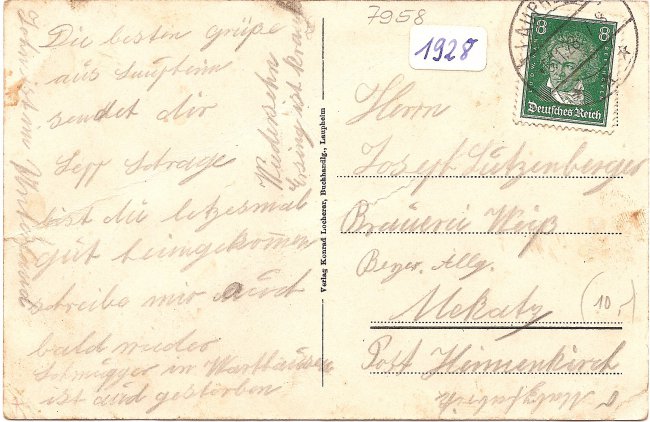 7958
1928
LAUPH
8 8
Deutsches Reich
Die besten Grüße
aus Laupheim
sendet dir
Sepp Strage
bist du letzesmal
gut heimgekomen
schreibe mir auch
bald wieder
Schwigger in Warthausen
ist auch gestorben
Wiedersehn
ist krank
Verlag Konrad Locherer, Buchhandlg., Laupheim
Herrn
Josseph Lutzenberger
Brauerei Weiß
Beyer. Allg.
Mekatz
Post Heimenkirch
10,-